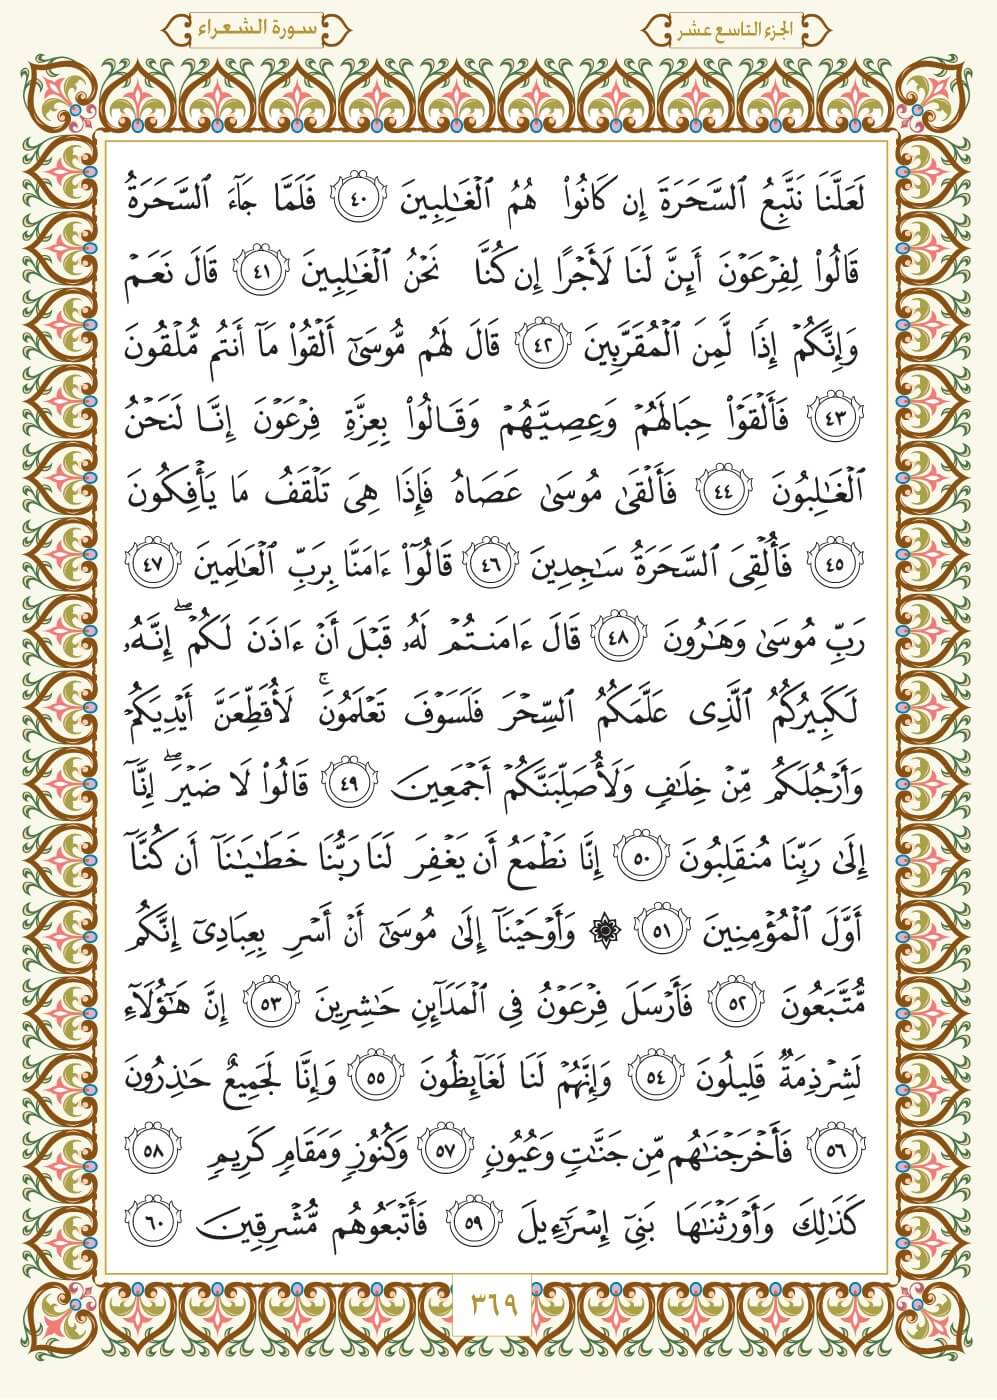 الجزء التاسع عشر
سورة الشعراء
لَعَلَّنَا نَتَّبِعُ ٱلسَّحَرَةَ إِن كَانُوا۟ هُمُ ٱلْغَـٰلِبِينَ ٤٠ فَلَمَّا جَآءَ ٱلسَّحَرَةُ
قَالُوا۟ لِفِرْعَوْنَ أَئِنَّ لَنَا لَأَجْرًا إِن كُنَّا نَحْنُ ٱلْغَـٰلِبِينَ ٤١ قَالَ نَعَمْ
وَإِنَّكُمْ إِذًا لَّمِنَ ٱلْمُقَرَّبِينَ ٤٢ قَالَ لَهُم مُّوسَىٰٓ أَلْقُوا۟ مَآ أَنتُم مُّلْقُونَ
٤٣ فَأَلْقَوْا۟ حِبَالَهُمْ وَعِصِيَّهُمْ وَقَالُوا۟ بِعِزَّةِ فِرْعَوْنَ إِنَّا لَنَحْنُ
ٱلْغَـٰلِبُونَ ٤٤ فَأَلْقَىٰ مُوسَىٰ عَصَاهُ فَإِذَا هِىَ تَلْقَفُ مَا يَأْفِكُونَ
٤٥ فَأُلْقِىَ ٱلسَّحَرَةُ سَـٰجِدِينَ ٤٦ قَالُوٓا۟ ءَامَنَّا بِرَبِّ ٱلْعَـٰلَمِينَ ٤٧
رَبِّ مُوسَىٰ وَهَـٰرُونَ ٤٨ قَالَ ءَامَنتُمْ لَهُۥ قَبْلَ أَنْ ءَاذَنَ لَكُمْ ۖ إِنَّهُۥ
لَكَبِيرُكُمُ ٱلَّذِى عَلَّمَكُمُ ٱلسِّحْرَ فَلَسَوْفَ تَعْلَمُونَ ۚ لَأُقَطِّعَنَّ أَيْدِيَكُمْ
وَأَرْجُلَكُم مِّنْ خِلَـٰفٍ وَلَأُصَلِّبَنَّكُمْ أَجْمَعِينَ ٤٩ قَالُوا۟ لَا ضَيْرَ ۖ إِنَّآ
إِلَىٰ رَبِّنَا مُنقَلِبُونَ ٥٠ إِنَّا نَطْمَعُ أَن يَغْفِرَ لَنَا رَبُّنَا خَطَـٰيَـٰنَآ أَن كُنَّآ
أَوَّلَ ٱلْمُؤْمِنِينَ ٥١ ۞ وَأَوْحَيْنَآ إِلَىٰ مُوسَىٰٓ أَنْ أَسْرِ بِعِبَادِىٓ إِنَّكُم
مُّتَّبَعُونَ ٥٢ فَأَرْسَلَ فِرْعَوْنُ فِى ٱلْمَدَآئِنِ حَـٰشِرِينَ ٥٣ إِنَّ هَـٰٓؤُلَآءِ
لَشِرْذِمَةٌ قَلِيلُونَ ٥٤ وَإِنَّهُمْ لَنَا لَغَآئِظُونَ ٥٥ وَإِنَّا لَجَمِيعٌ حَـٰذِرُونَ
٥٦ فَأَخْرَجْنَـٰهُم مِّن جَنَّـٰتٍ وَعُيُونٍ ٥٧ وَكُنُوزٍ وَمَقَامٍ كَرِيمٍ ٥٨
كَذَٰلِكَ وَأَوْرَثْنَـٰهَا بَنِىٓ إِسْرَٰٓءِيلَ ٥٩ فَأَتْبَعُوهُم مُّشْرِقِينَ ٦٠
٣٦٩